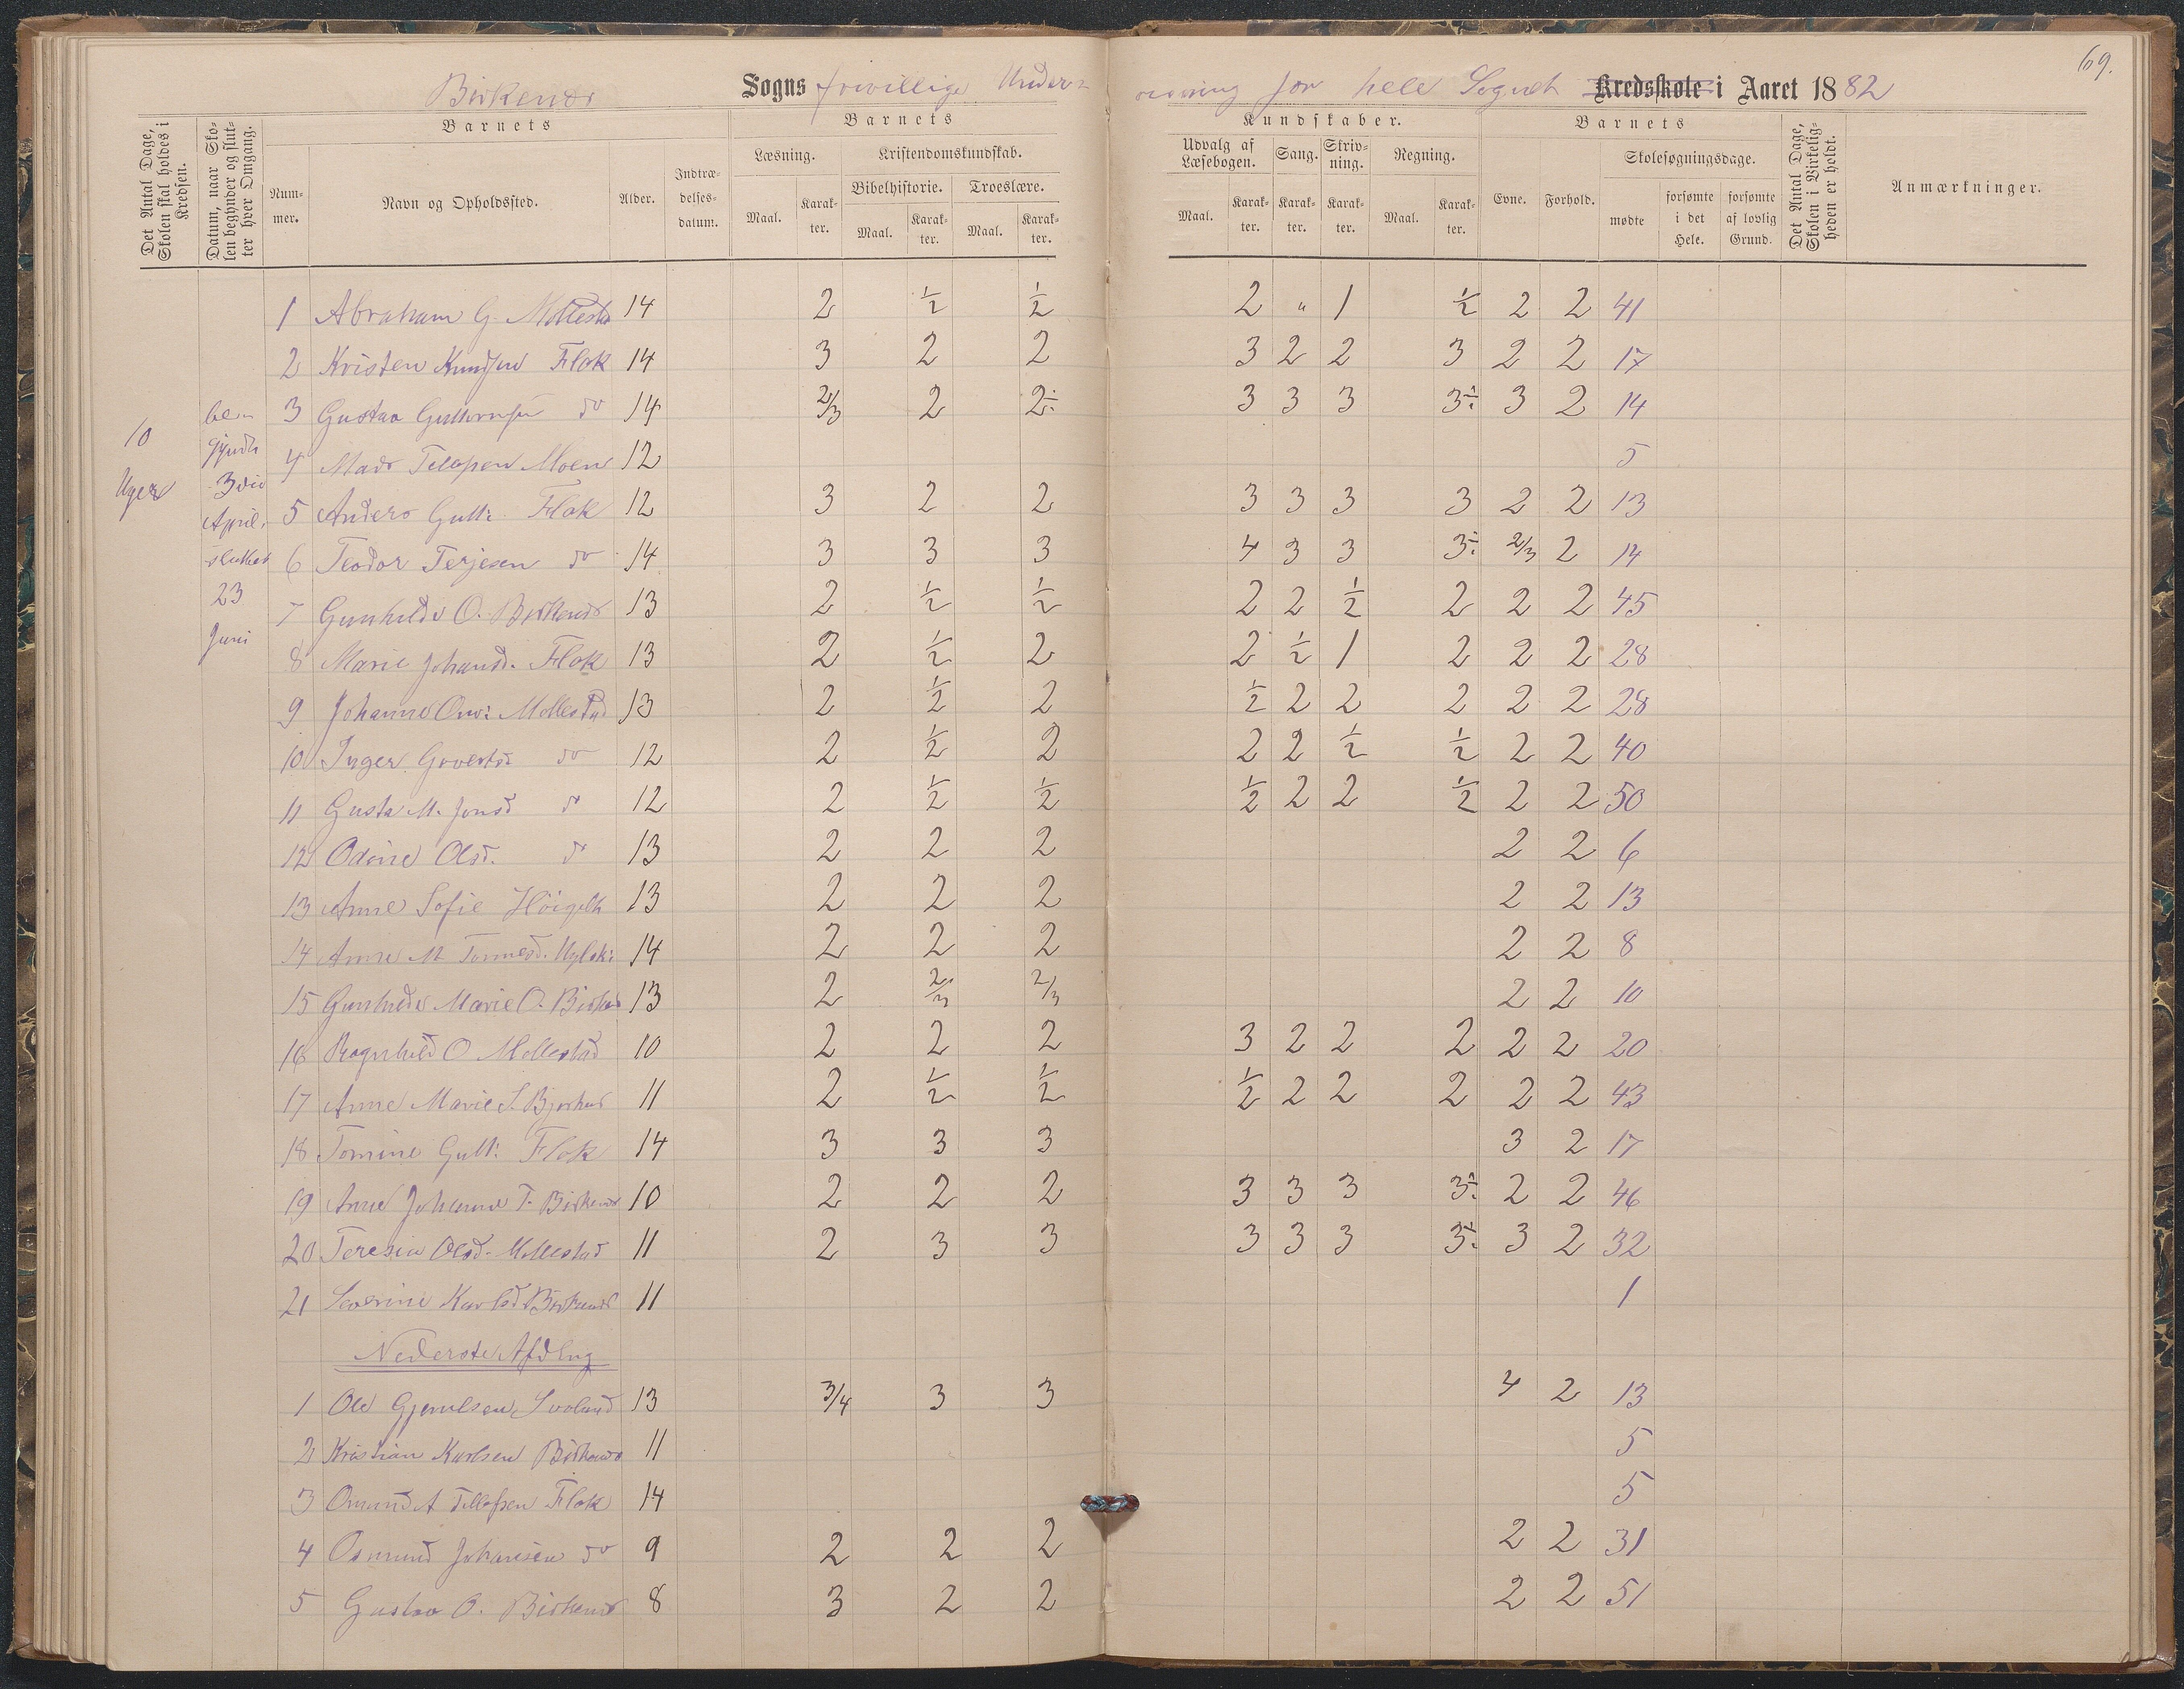 69.
Birkenes Sogns frivillige Undervisning for hele Sognet Kredsskole i Aaret 1882
Det Antal Dage, Skolen skal holdes i Kredsen.
Datum, naar Skolen begynder og slutter hver Omgang.
Barnets
Nummer.
Navn og Opholdssted.
Alder.
Indtrædelsesdatum.
Barnets
Læsning.
Maal.
Karakter.
Kristendomskundskab.
Bibelhistorie.
Maal.
Karakter.
Troeslære.
Maal.
Karakter.
Kundskaber.
Udvalg af Læsebogen.
Maal.
Karakter.
Sang.
Karakter.
Skrivning.
Karakter.
Regning.
Maal.
Karakter.
Barnets
Evne.
Forhold.
Skolesøgningsdage.
mødte
forsømte i det Hele.
forsømte af lovlig Grund.
Det Antal Dage, Skolen i Virkeligheden er holdt.
Anmærkninger.
10
Uger
be-
gyndte
3die
April,
sluttet
23
Juni
1 Abraham G. Mollestad 14 2 1/2 1/2 2 " 1 1/2 2 2 41
2 Kristen Knudsen Flak 14 3 2 2 3 2 2 3 2 2 17
3 Gustav Guttormsen do 14 2/3 2 2÷ 3 3 3 3÷ 3 2 14
4 Mads Tellefsen Moen 12 5
5 Anders Gutt: Flak 12 3 2 2 3 3 3 3 2 2 13
6 Teodor Terjesen do 14 3 3 3 4 3 3 3÷ 2/3 2 14
7 Gunhilde O. Birkenes 13 2 1/2 1/2 2 2 1/2 2 2 2 45
8 Marie Johansd. Flak 13 2 1/2 2 2 1/2 1 2 2 2 28
9 Johanne Mollestad 13 2 1/2 2 1/2 2 2 2 2 2 28
10 Inger do 12 2 1/2 2 2 2 1/2 1/2 2 2 40
11 Gusta M. Jensd d 12 2 1/2 1/2 1/2 2 2 1/2 2 2 50
12 Odine Olsd. do 13 2 2 2 2 2 6
13 Anne Sofie 13 2 2 2 2 2 13
14 Anne M 14 2 2 2 2 2 8
15 Gunhilde Marie O. Birkes 13 2 2/3 2/3 2 2 10
16 Ragnhild O Mollestad 10 2 2 2 3 2 2 2 2 2 20
17 Anne Marie S. 11 2 1/2 1/2 1/2 2 2 2 2 2 43
18 Tomine Gutt: Flak 14 3 3 3 3 2 17
19 Anne Johanne T. Birkenes 10 2 2 2 3 3 3 3÷ 2 2 46
20 Teresia Olsd. Mollestad 11 2 3 3 3 3 3 3÷ 3 2 32
21 Severine Karlsd Birkenes 11 1
Nederste Afdlng
1 Ole Gjerulsen Svaland 13 3/4 3 3 4 2 13
2 Kristian Karlsen Birkenes 11 5
3 Omund A Tellefsen Flak 14 5
4 Osmund Johansen do 9 2 2 2 2 2 31
5 Gustav O. Birkenes 8 3 2 2 2 2 51